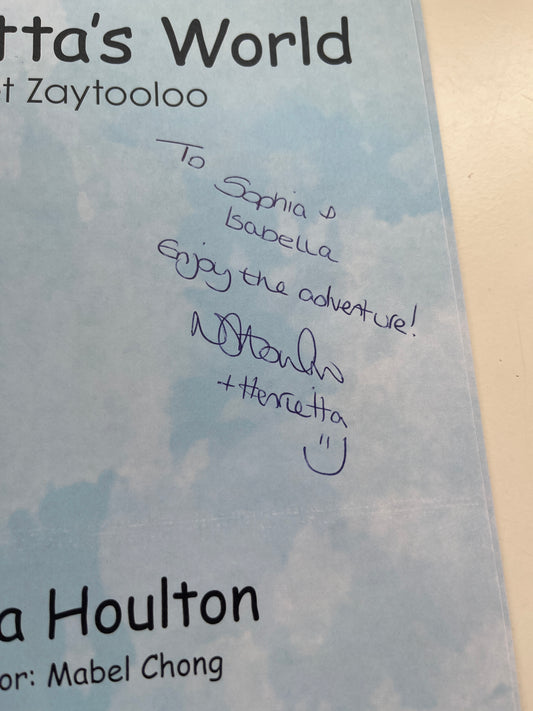 tta's World
t Zaytooloo
To
Sophia &
Isabella
Enjoy the adventure!
+ Henrietta
a Houlton
or: Mabel Chong